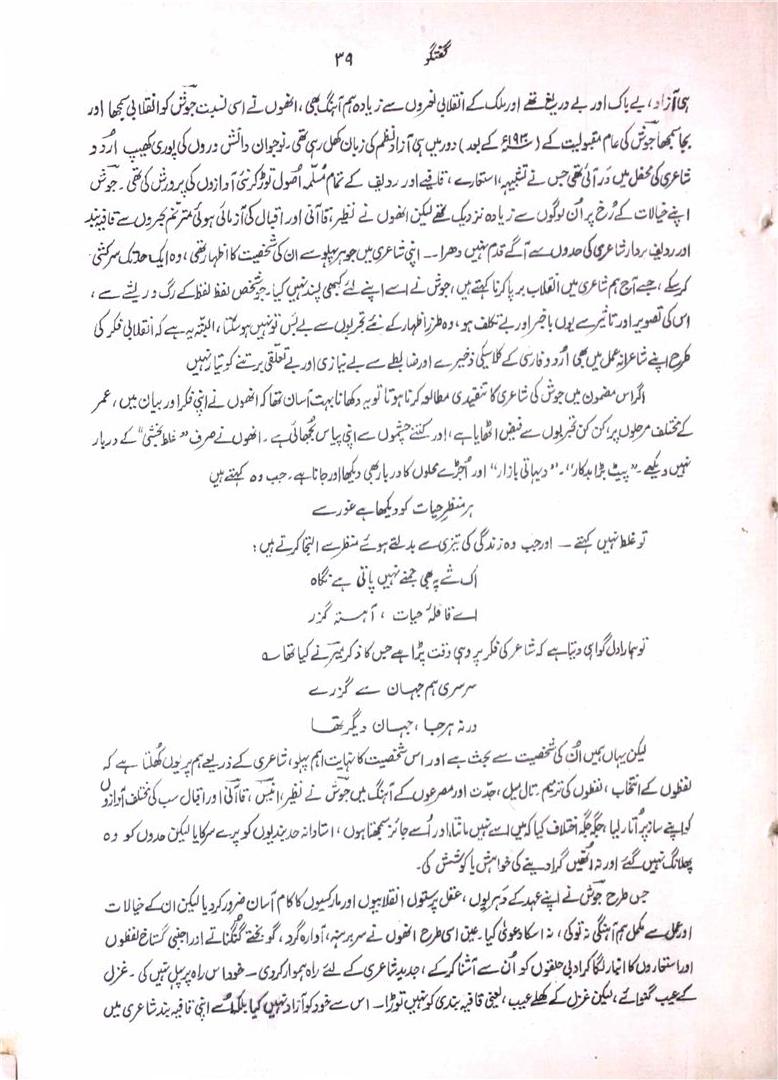 گفتگو ۳۹
ہی آزاد، بے باک اور بے دریغ تھے اور ملک کے انقلابی نعروں سے زیادہ ہم آہنگ بھی، انھوں نے اسی نسبت جوشؔ کو انقلابی سمجھا اور
بجا سمجھا جوشؔ کی عام مقبولیت کے (۱۹۳۰ء کے بعد) دور میں ہی آزاد نظم کی زبان کھل رہی تھی۔ نوجوان دانش وروں کی پوری کھیپ اُردو
شاعری کی محفل میں در آئی تھی جس نے تشبیہ، استعارے، قافیے اور ردیف کے تمام مُسلّمہ اصول توڑ کر نئی آوازوں کی پرورش کی تھی۔ جوشؔ
اپنے خیالات کے رُخ پر اُن لوگوں سے زیادہ نزدیک تھے لیکن انھوں نے نظیر، قاآنی اور اقبال کی آزمائی ہوئی مترنم بحروں سے قافیہ بند
اور ردیف بردار شاعری کی حدوں سے آگے قدم نہیں دھرا۔۔ اپنی شاعری میں جو ہر پہلو سے ان کی شخصیت کا اظہار تھی، وہ ایک حد تک سرکشی
کر سکے، جسے آج ہم شاعری میں انقلاب برپا کرنا کہتے ہیں، جوش نے اسے اپنے لئے کبھی پسند نہیں کیا۔ جو شخص لفظ لفظ کے رگ و ریشے سے،
اس کی تصویر اور تاثیر سے یوں باخبر اور بے تکلف ہو، وہ طرزِ اظہار کے نئے تجربوں سے بے بس تو نہیں ہو سکتا، البتہ یہ ہے کہ انقلابی فکر کی
طرح اپنے شاعرانہ عمل میں بھی اُردو فارسی کے کلاسیکی ذخیرے اور ضابطے سے بے نیازی اور بے تعلقی برتنے کو تیار نہیں
اگر اس مضمون میں جوش کی شاعری کا تنقیدی مطالعہ کرنا ہوتا تو یہ دکھانا بہت آسان تھا کہ انھوں نے اپنی فکر اور بیان میں، عمر
کے مختلف مرحلوں پر، کن کن تجربوں سے فیض اٹھایا ہے، اور کتنے چشموں سے اپنی پیاس بجھائی ہے۔ انھوں نے صرف "غلط بخشی" کے دربار
نہیں دیکھے۔ "پیٹ بڑا بدکار"۔ "دیہاتی بازار" اور اُجڑے محلوں کا دربار بھی دیکھا اور جانا ہے۔ جب وہ کہتے ہیں
ہر منظرِ حیات کو دیکھا ہے غور سے
تو غلط نہیں کہتے ۔۔ اور جب وہ زندگی کی تیزی سے بدلتے ہوئے منظر سے التجا کرتے ہیں:
اک شے پہ بھی جمنے نہیں پاتی ہے نگاہ
اے قافلۂ حیات، آہستہ گزر
تو ہمارا دل گواہی دیتا ہے کہ شاعر کی فکر پر وہی وقت پڑا ہے جس کا ذکر میرؔ نے کیا تھا ؎
سرسری ہم جہان سے گزرے
ورنہ ہر جا، جہان دیگر تھا
لیکن یہاں ہمیں اُن کی شخصیت سے بحث ہے اور اس شخصیت کا نہایت اہم پہلو، شاعری کے ذریعے ہم پر یوں کھُلتا ہے کہ
لفظوں کے انتخاب، لفظوں کی ترمیم، تال میل، جدّت اور مصرعوں کے آہنگ میں جوشؔ نے نظیر، انیسؔ، قاآنی اور اقبال سب کی مختلف آوازوں
کو اپنے ساز پر اُتار لیا، جگہ جگہ اختلاف کیا کہ میں اسے نہیں مانتا اور اُسے جائز سمجھتا ہوں، استادانہ حد بندیوں کو پرے سرکایا لیکن حدوں کو وہ
پھلانگ نہیں گئے اور نہ انھیں گرا دینے کی خواہش یا کوشش کی۔
جس طرح جوشؔ نے اپنے عہد کے دہریوں، عقل پرستوں انقلابیوں اور مارکسیوں کا کام آسان ضرور کر دیا لیکن ان کے خیالات
اور عمل سے مکمل ہم آہنگی نہ تو کی، نہ اسکا دعویٰ کیا۔ عین اسی طرح انھوں نے سر برہنہ، آوارہ گرد، گونجتے گنگناتے اور اجنبی گستاخ لفظوں
اور استعاروں کا انبار لگا کر ادبی حلقوں کو اُن سے آشنا کر کے، جدید شاعری کے لئے راہ ہموار کر دی۔ خود اس راہ پر پہل نہیں کی۔ غزل
کے عیب گنوائے، لیکن غزل کے کھلے عیب، یعنی قافیہ بندی کو نہیں توڑا۔ اس سے خود کو آزاد نہیں کیا بلکہ اُسے اپنی قافیہ بند شاعری میں